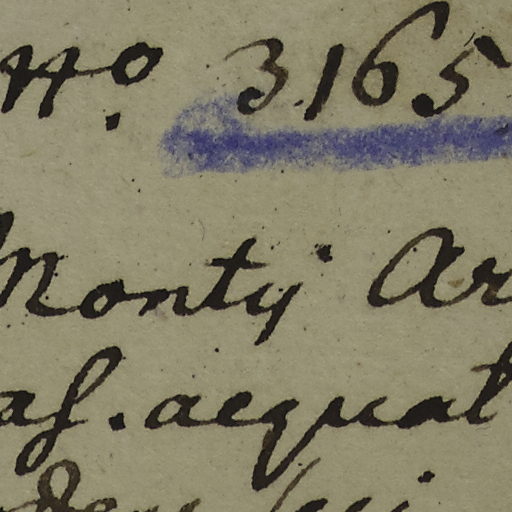 No. 3165
Montij Ar
as. aequat